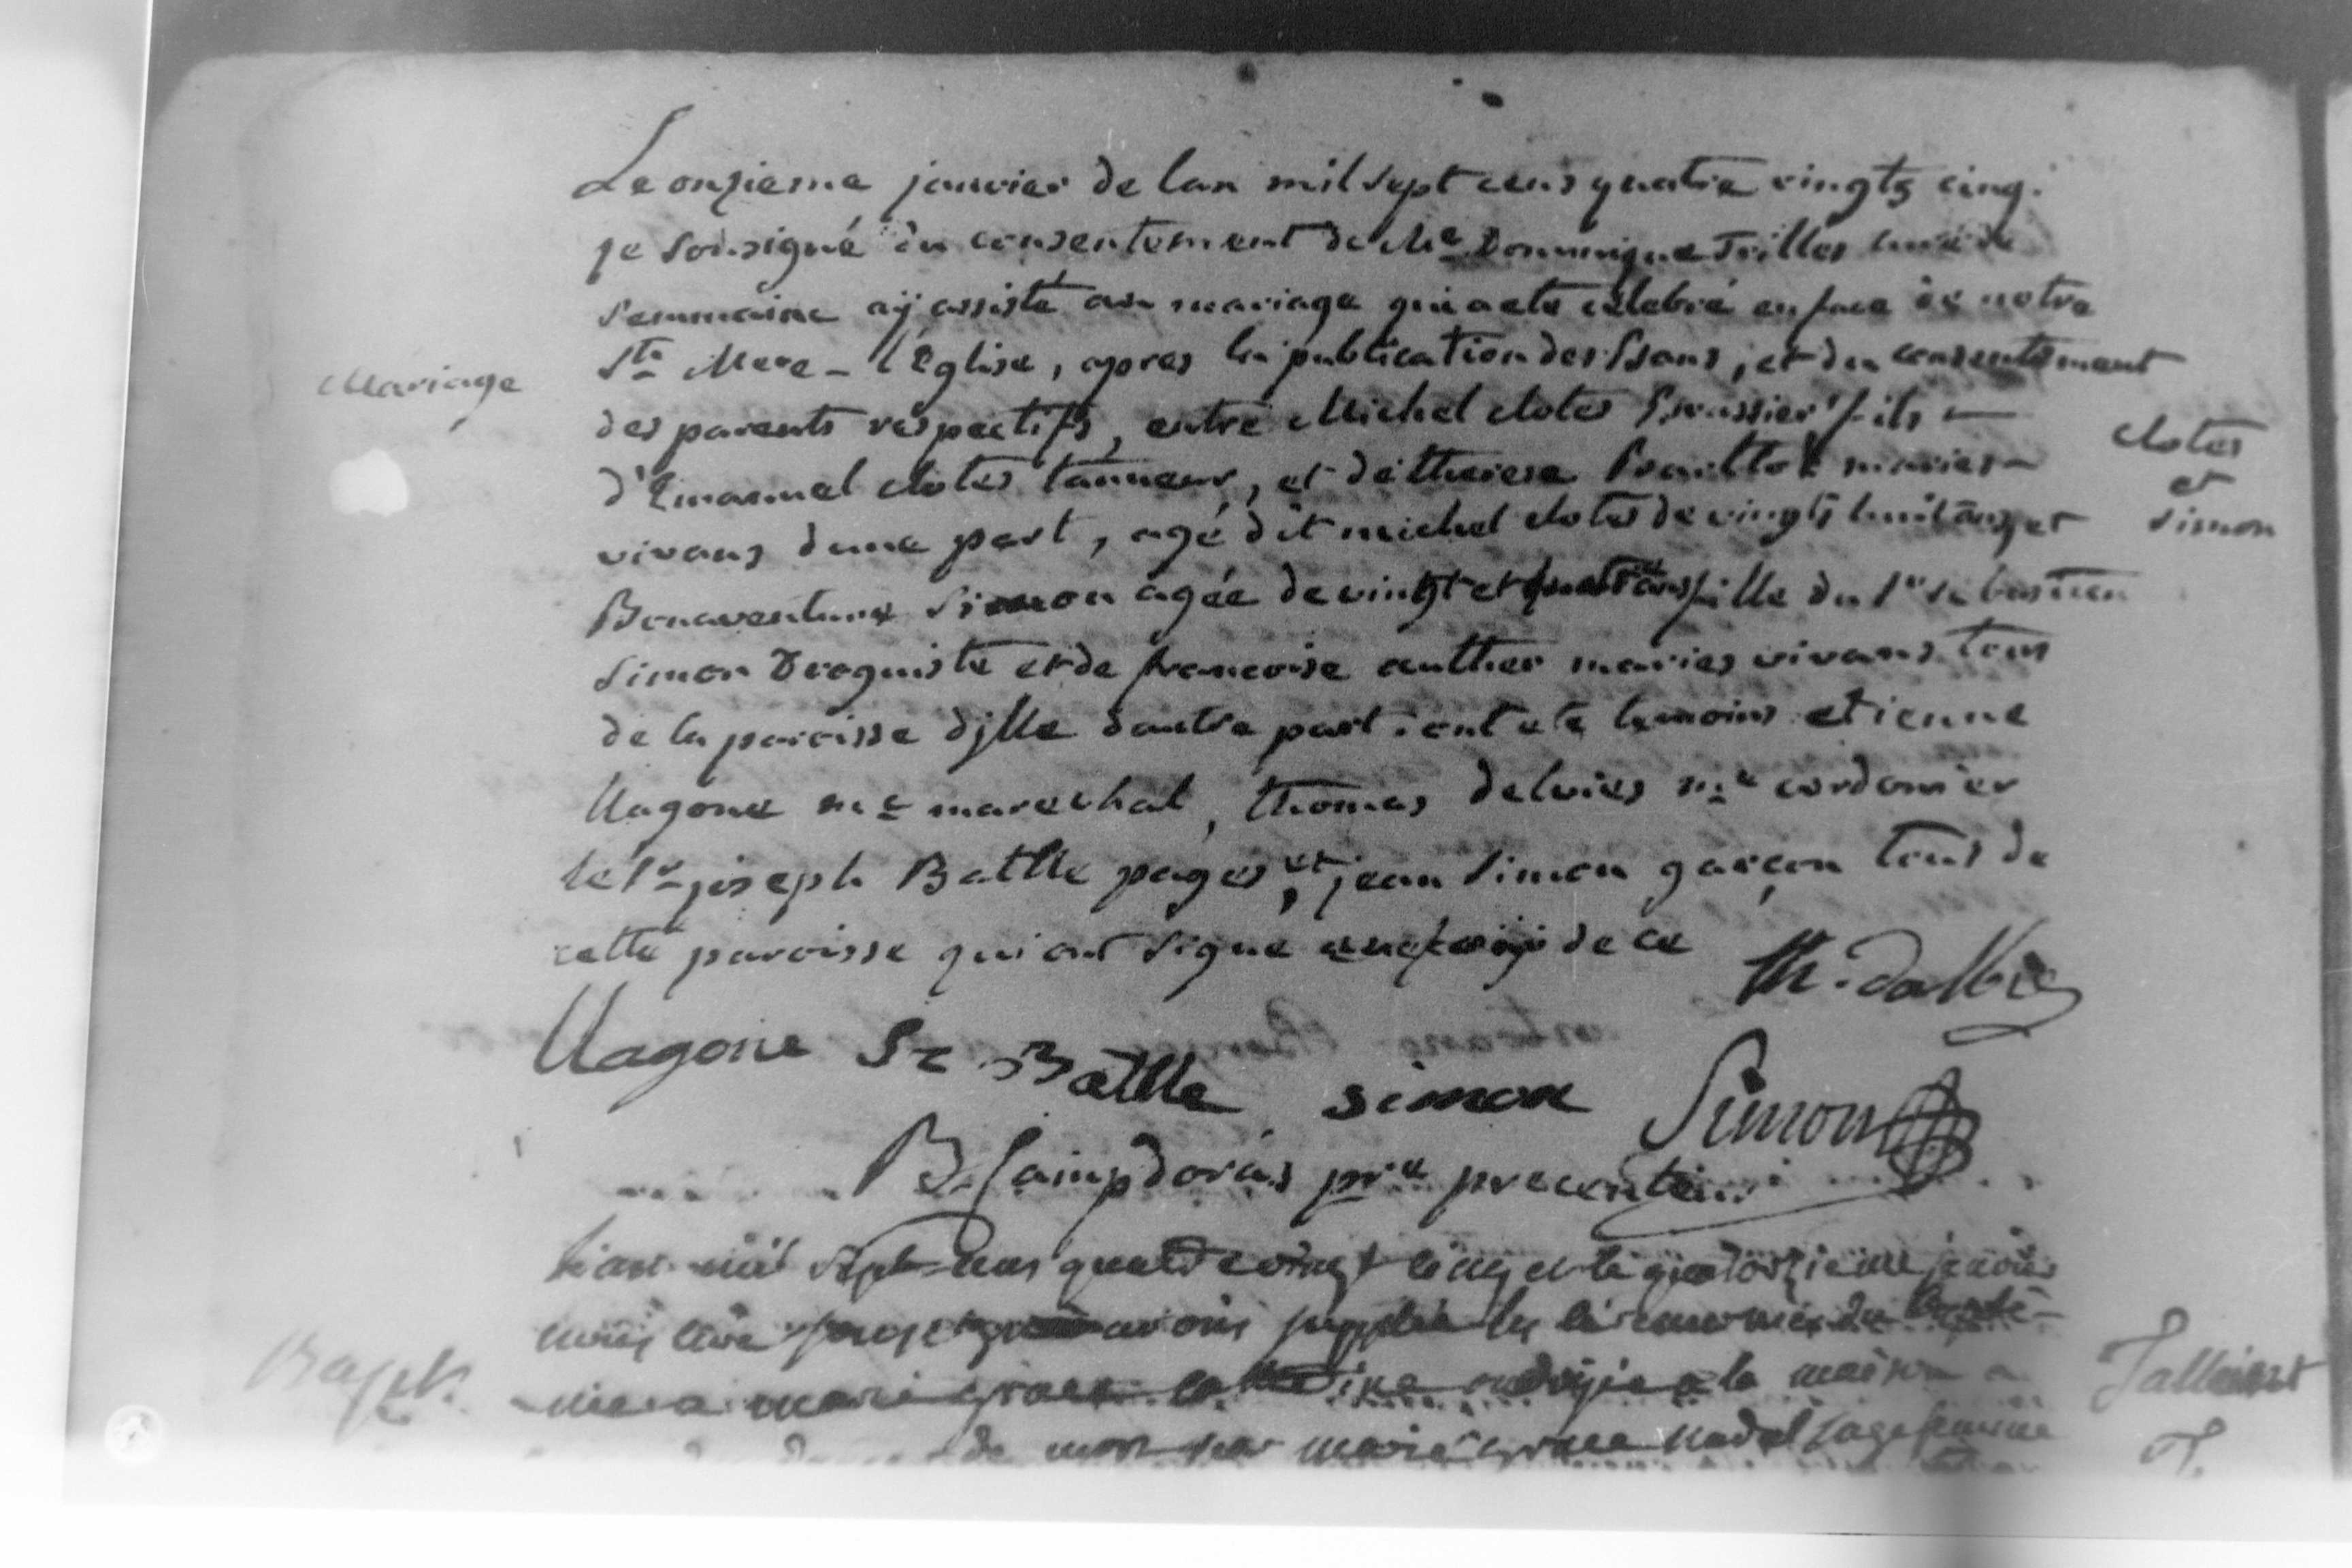 Le onzieme janvier de lan mil sept cens quatre vingts cinq.
je sousigné du consentement de Me Dominique Trilles curé de
semmaine aÿ assisté au mariage qui a ete célebré en face de notre
Ste Mere l'Eglise, apres la publication des bans, et du consentement
Mariage
des parents respectifs, entre Michel clotes brassier fils
d'Emanuel clotes tanneur, et de therese mariés
clotes
et
simon
vivans dune part, agé dit michel clotes de vingts huit ans, et
Bonaventure Simon agée de vingt et quatre ans fille du Sr sebastien
Simon Droguiste et de francoise authier mariés vivans tous
de la paroisse djlle dautre part. ont ete temoins etienne
Llagone me marechal, thomas delvies me cordonier
le Sr joseph Batlle pages, et jean Simon garçon tous de
cette paroisse qui ont signe de ce
th. dalbies
Llagone Batlle simon Simon
B. Campdoras pre precenteur
Lan mil sept cens quatre vingt cinq et le quatorzieme janvier
avons supplée les ceremonies du
Bapt.
marie grace la maison
de mon par marie grace nadal sage femme